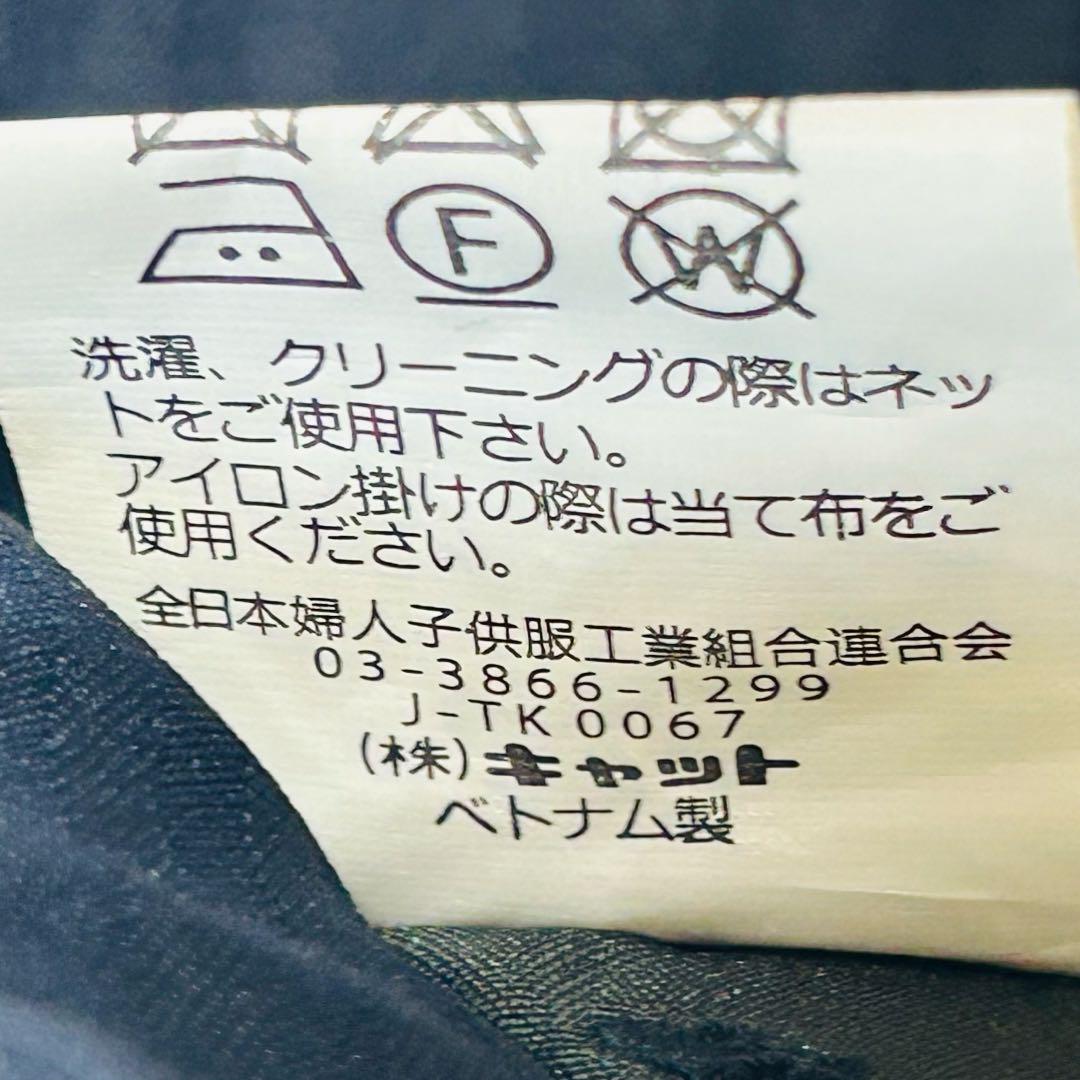 F W
洗濯、クリーニングの際はネッ
トをご使用下さい。
アイロン掛けの際は当て布をご
使用ください。
全日本婦人子供服工業組合連合会
03-3866-1299
J-TK0067
(株)キャット
ベトナム製